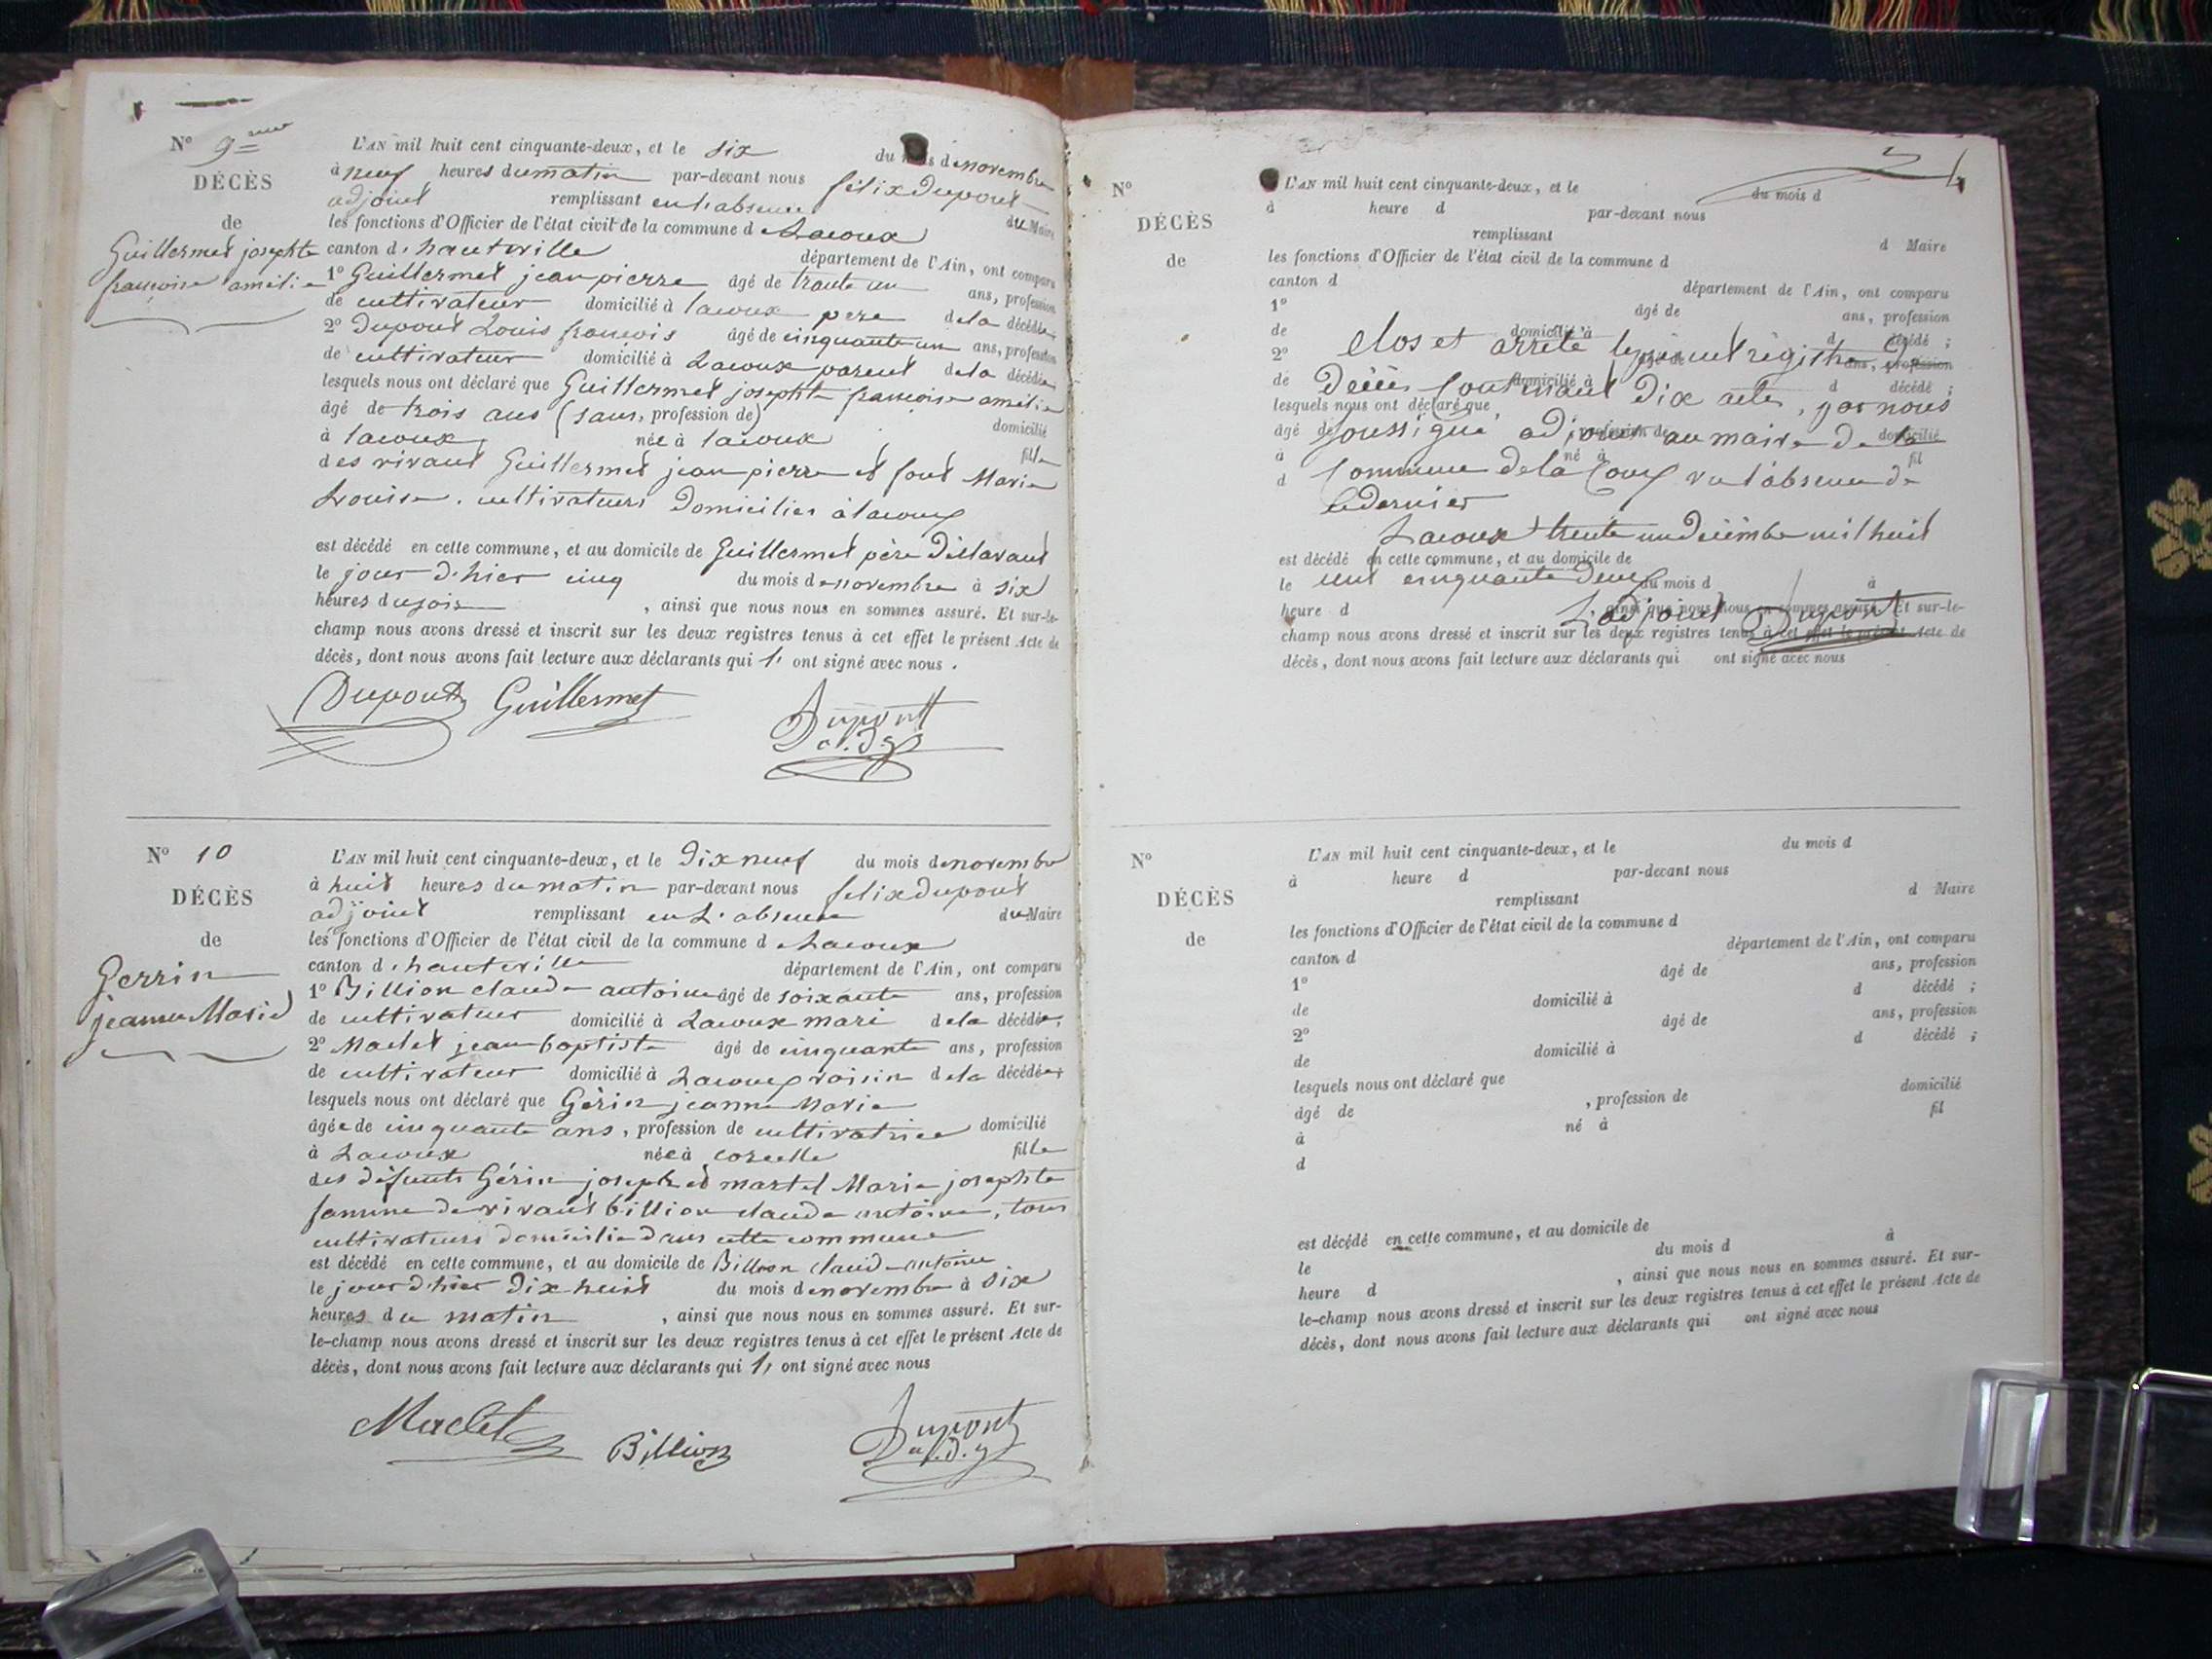 N° 9
DÉCÈS
de
Guillermet josephte
françoise amélie
L'AN mil huit cent cinquante-deux, et le six du mois de novembre
à neuf heures du matin par-devant nous félix dupont
adjoint remplissant en l'absence du Maire
les fonctions d'Officier de l'état civil de la commune d Lacoux
canton d'hauteville département de l'Ain, ont comparu
1° Guillermet jean pierre âgé de trante un ans, profession
de cultivateur domicilié à lacoux pere de la décédée
2° Dupont Louis françois âgé de cinquante un ans, profession
de cultivateur domicilié à Lacoux parent de la décédée
lesquels nous ont déclaré que Guillermet josephte françoise amélie
âgé de trois ans (sans, profession de) domicilié
à lacoux née à lacoux fille
des vivant Guillermet jean pierre et font Marie
Louise. cultivateurs Domiciliés à lacoux
est décédé en cette commune, et au domicile de Guillermet père
le jour d'hier cinq du mois de novembre à six
heures du soir , ainsi que nous nous en sommes assuré. Et sur-le-
champ nous avons dressé et inscrit sur les deux registres tenus à cet effet le présent Acte de
décès, dont nous avons fait lecture aux déclarants qui ont signé avec nous .
Dupont Guillermet Dupont
adj
N° 10
DÉCÈS
de
Gerrin
jeanne Marie
L'AN mil huit cent cinquante-deux, et le Dix neuf du mois de novembre
à huit heures du matin par-devant nous félix dupont
adjoint remplissant en L'absence du Maire
les fonctions d'Officier de l'état civil de la commune d Lacoux
canton d'hauteville département de l'Ain, ont comparu
1° Billion claude antoine âgé de soixante ans, profession
de cultivateur domicilié à Lacoux mari de la décédée;
2° Maclet jean baptiste âgé de cinquante ans, profession
de cultivateur domicilié à Lacoux voisin de la décédée;
lesquels nous ont déclaré que Gérin jeanne Marie
âgée de cinquante ans, profession de cultivatrice domicilié
à Lacoux née à corcelle fille
des défunts Gérin joseph et martel Marie josephte
famme de vivant billion claude antoine, tous
cultivateurs domicilié dans cette commune
est décédé en cette commune, et au domicile de Billion claude antoine
le jour d'hier Dix huit du mois de novembre à six
heures du matin , ainsi que nous nous en sommes assuré. Et sur-
le-champ nous avons dressé et inscrit sur les deux registres tenus à cet effet le présent Acte de
décès, dont nous avons fait lecture aux déclarants qui ont signé avec nous
Maclet Billion Dupont
adj
N°
DÉCÈS
de
L'AN mil huit cent cinquante-deux, et le du mois d
à heure d par-devant nous
remplissant d Maire
les fonctions d'Officier de l'état civil de la commune d
canton d département de l'Ain, ont comparu
1° âgé de ans, profession
de domicilié à d décédé ;
Clos et arrêté le présent régistre De
2° ans, profession
de domicilié à d décédé ;
Décès Contenant Dix actes, par nous
lesquels nous ont déclaré que
âgé de profession de domicilié
soussigné adjoint au maire De la
à né à fil
d
Commune de la Coux vu l'absence de
Ce dernier
Lacoux trente un Décembre mil huit
est décédé en cette commune, et au domicile de
le du mois d à
cent cinquante Deux
heure d , ainsi que nous nous en sommes assuré. Et sur-le-
L'adjoint Dupont
champ nous avons dressé et inscrit sur les deux registres tenus à cet effet le présent Acte de
décès, dont nous avons fait lecture aux déclarants qui ont signé avec nous
N°
DÉCÈS
de
L'AN mil huit cent cinquante-deux, et le du mois d
à heure d par-devant nous
remplissant d Maire
les fonctions d'Officier de l'état civil de la commune d
canton d département de l'Ain, ont comparu
1° âgé de ans, profession
de domicilié à d décédé ;
2° âgé de ans, profession
de domicilié à d décédé ;
lesquels nous ont déclaré que
âgé de , profession de domicilié
à né à fil
d
est décédé en cette commune, et au domicile de
le du mois d à
heure d , ainsi que nous nous en sommes assuré. Et sur-
le-champ nous avons dressé et inscrit sur les deux registres tenus à cet effet le présent Acte de
décès, dont nous avons fait lecture aux déclarants qui ont signé avec nous